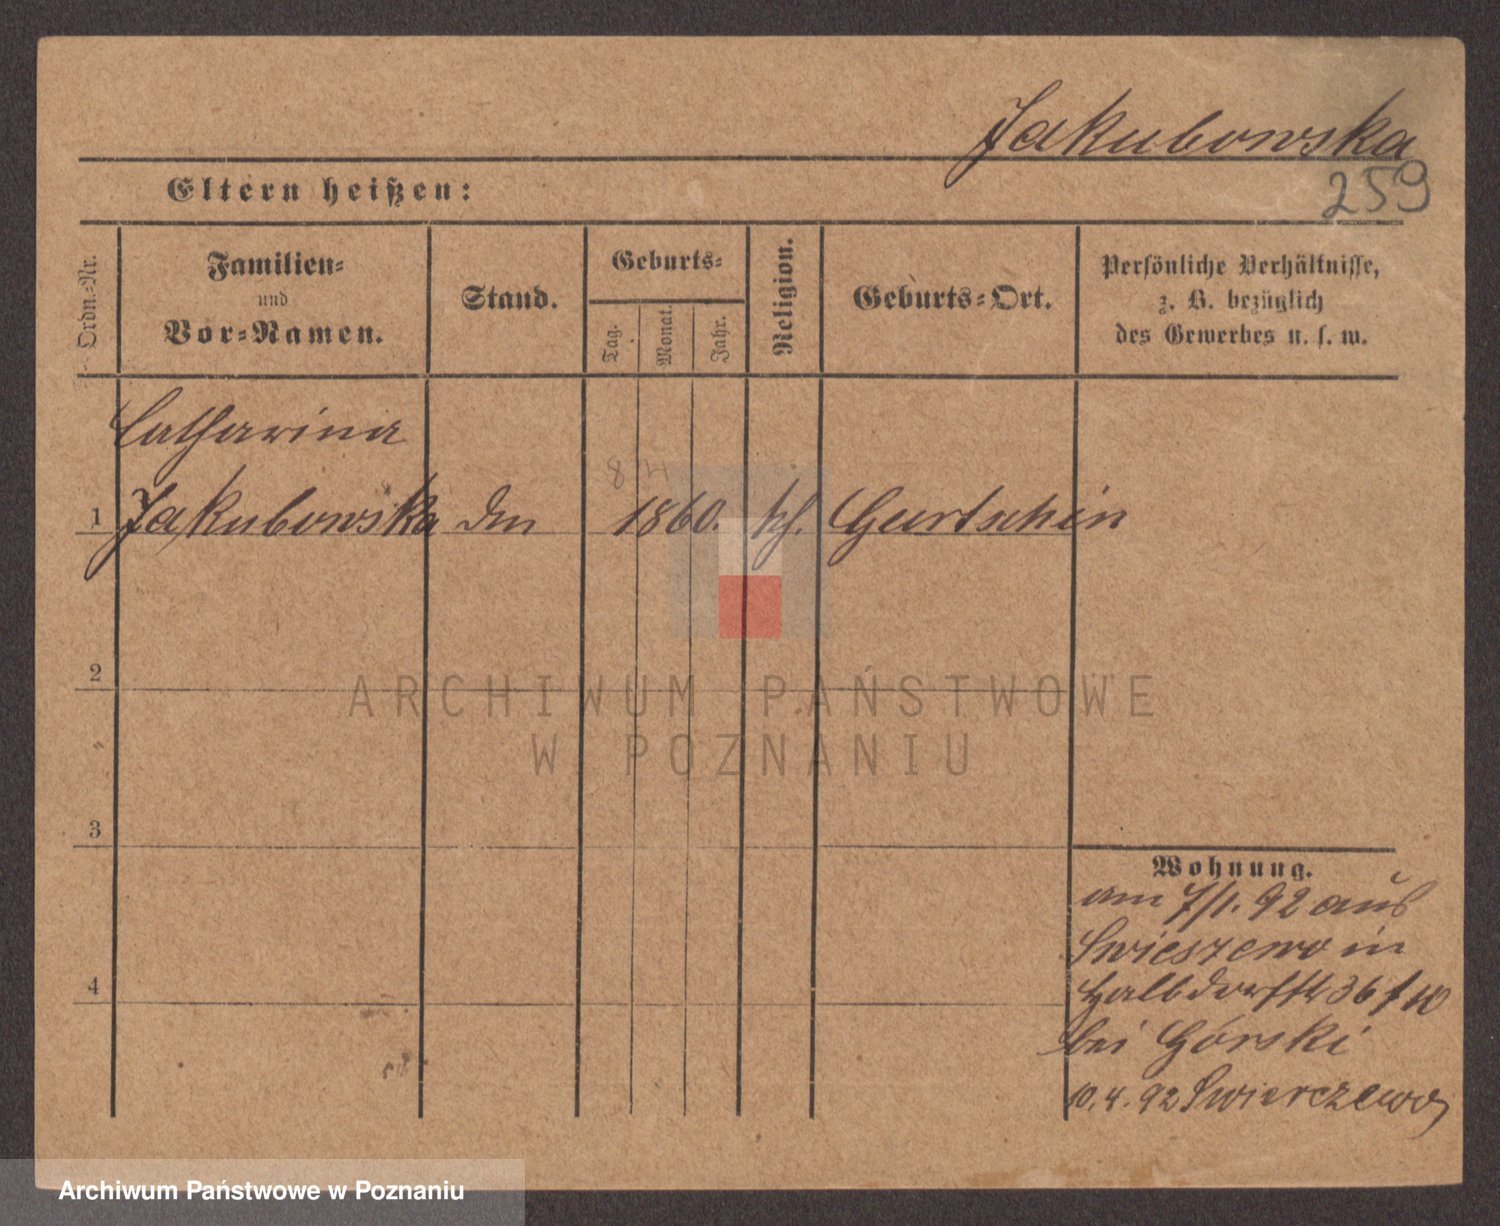 Jakubowska
259
Eltern heißen:
Ordn.-Nr.
Familien- und Vor-Namen.
Stand.
Geburts-
Tag.
Monat.
Jahr.
Religion.
Geburts-Ort.
Persönliche Verhältnisse,
z. B. bezüglich
des Gewerbes u. s. w.
Catharina
1 Jakubowska 1860. kth. Gurtschin
2
3
4
Wohnung.
am 7/1. 92 aus
Swieszewo in
Halbdorfstr 36
bei Gorski
10. 4. 92 Swierczewo
ARCHIWUM PAŃSTWOWE
W POZNANIU
Archiwum Państwowe w Poznaniu